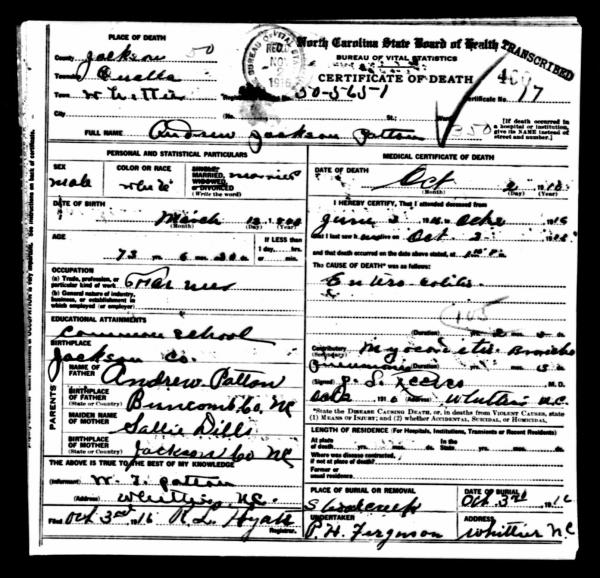 PLACE OF DEATH
County Jackson 50
Township Qualla
Whittier
City
BUREAU OF VITAL STA
REC.
NOV
1916
North Carolina State Board of Health
TRANSCRIBED
BUREAU OF VITAL STATISTICS
CERTIFICATE OF DEATH
Certificate No. 17
50-565-1
St.;
[If death occurred in a hospital or institution, give its NAME instead of street and number.]
FULL NAME Andrew Jackson Patton
PERSONAL AND STATISTICAL PARTICULARS
SEX
male
COLOR OR RACE
white
SINGLE,
MARRIED,
WIDOWED,
or DIVORCED
(Write the word)
married
DATE OF BIRTH
March 12
(Month) (Day) (Year)
AGE
73 yrs. 6 mos. 20 ds.
If LESS than
1 day, hrs.
OCCUPATION
(a) Trade, profession, or
particular kind of work Farmer
(b) General nature of industry,
business, or establishment in
which employed (or employer)
EDUCATIONAL ATTAINMENTS
Common school
BIRTHPLACE
Jackson Co.
PARENTS
NAME OF
FATHER Andrew Patton
BIRTHPLACE
OF FATHER
(State or Country) Buncomb Co, NC
MAIDEN NAME
OF MOTHER Sallie Dills
BIRTHPLACE
OF MOTHER
(State or Country) Jackson Co NC
THE ABOVE IS TRUE TO THE BEST OF MY KNOWLEDGE
(Informant) Patton
(Address) Whittier, N.C.
Filed Oct 3rd 1916 R. L. Hyatt
Registrar.
MEDICAL CERTIFICATE OF DEATH
DATE OF DEATH
Oct 2 1916
(Month) (Day) (Year)
I HEREBY CERTIFY, That I attended deceased from
June 2 1916 to Oct 2 1916
that I last saw h alive on Oct 2 1916
and that death occurred on the date above stated, at
The CAUSE OF DEATH* was as follows:
Entero-colitis
105
(Duration)
Contributory Myocarditis Broncho
(Secondary)
pneumonia
(Duration)
(Signed) M.D.
Oct 2 1916 (Address) Whittier N.C.
*State the DISEASE CAUSING DEATH, or, in deaths from VIOLENT CAUSES, state
(1) MEANS OF INJURY; and (2) whether ACCIDENTAL, SUICIDAL, or HOMICIDAL.
LENGTH OF RESIDENCE (For Hospitals, Institutions, Transients or Recent Residents)
At place
of death
In the
State
Where was disease contracted,
if not at place of death?
Former or
usual residence
PLACE OF BURIAL OR REMOVAL
DATE OF BURIAL
Oct. 3rd, 1916
UNDERTAKER
P. H. Ferguson
ADDRESS
Whittier NC